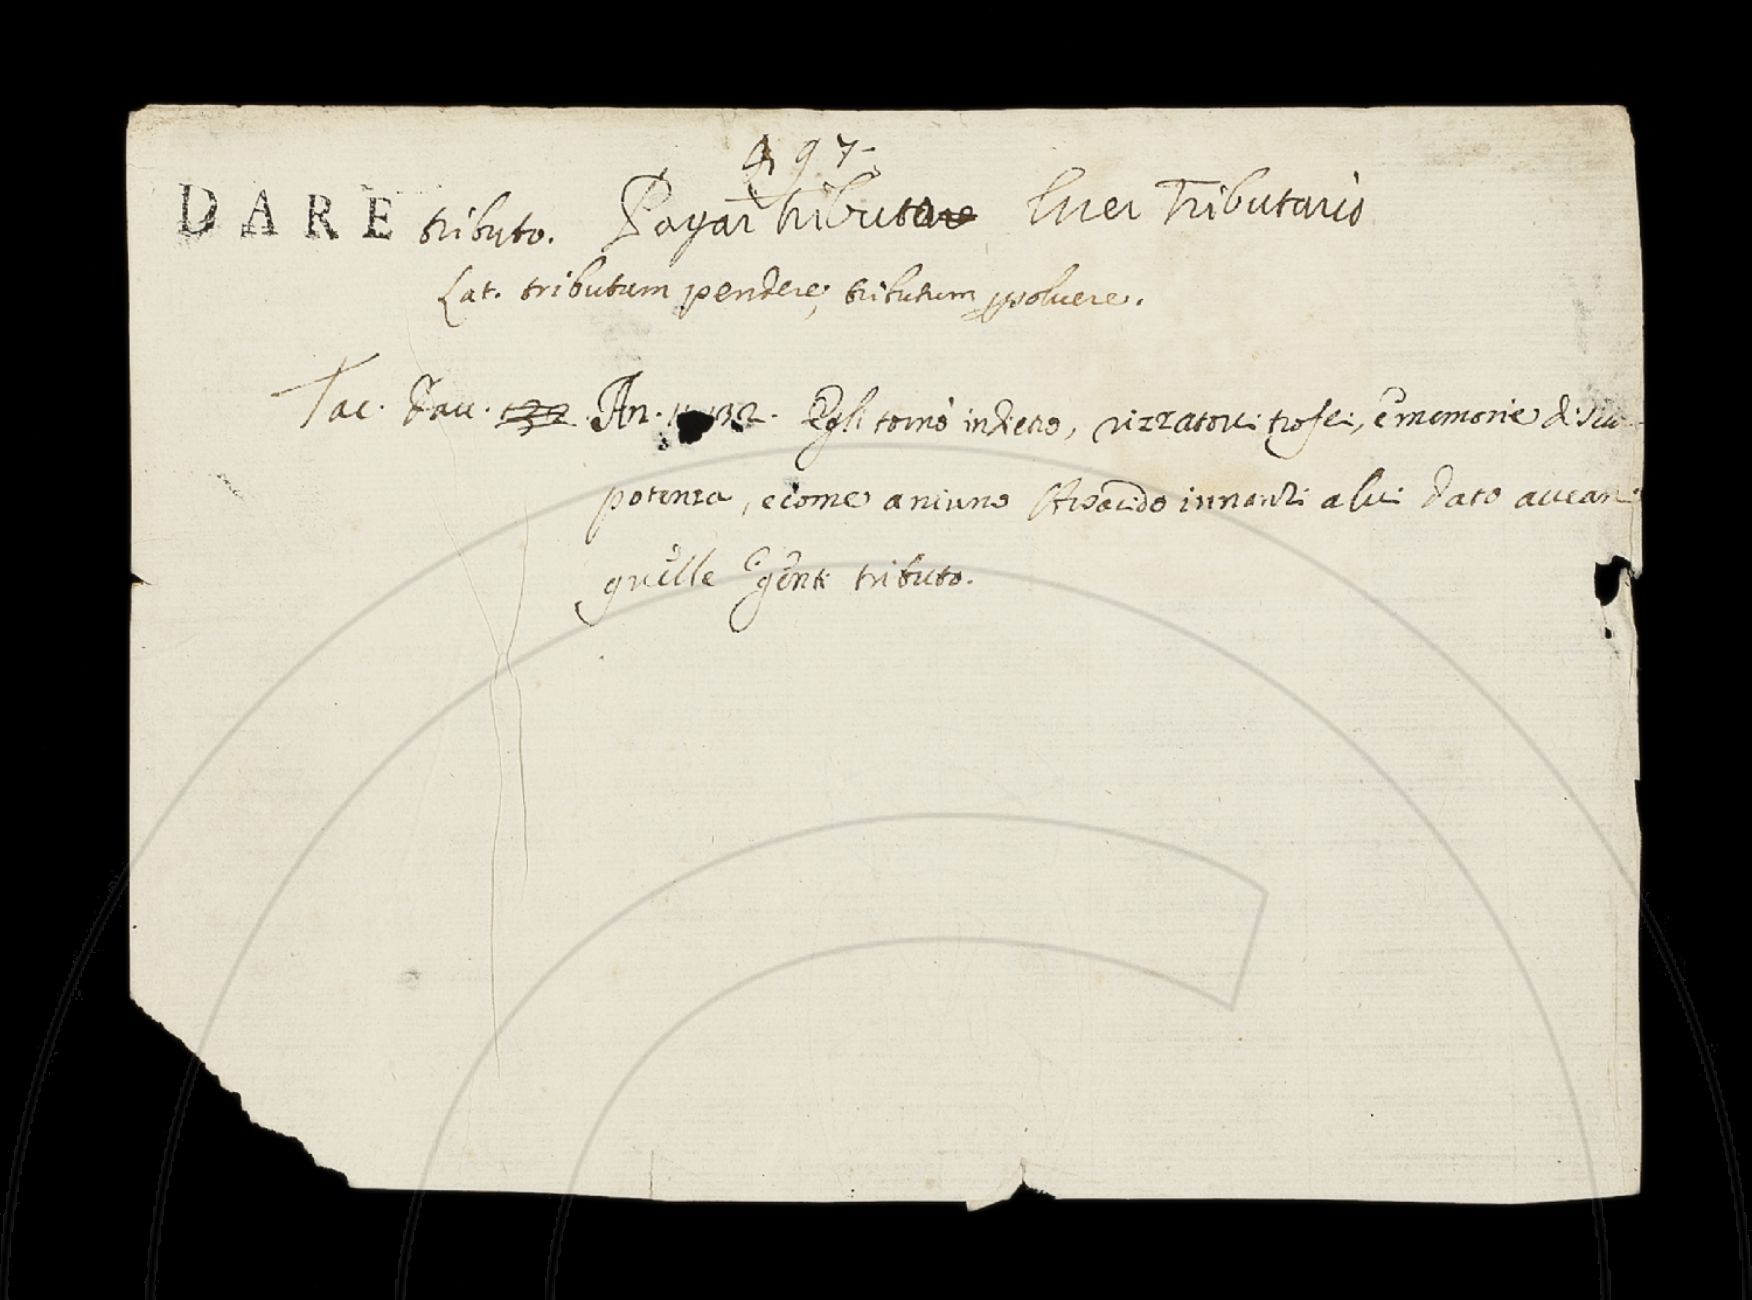 497.
DARE tributo. Pagar tributo Esser Tributario
Lat. tributum pendere, tributum persoluere.
Tac. Dau. 132. An. 11. 132. Egli tornò indietro, rizzatovi trofei, e memorie di sua
potenza, e come a niuno Arsacido innanzi a lui dato avean
quelle genti tributo.